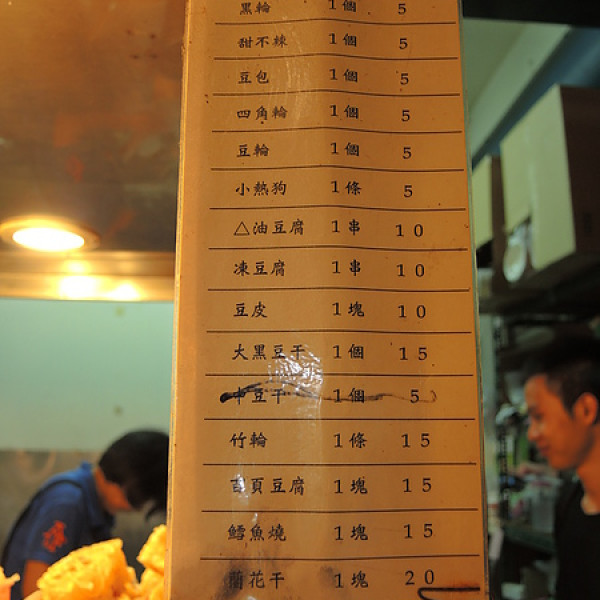 黑輪 1個 5
甜不辣 1個 5
豆包 1個 5
四角輪 1個 5
豆輪 1個 5
小熱狗 1條 5
△油豆腐 1串 10
凍豆腐 1串 10
豆皮 1塊 10
大黑豆干 1個 15
中豆干 1個 5
竹輪 1條 15
百頁豆腐 1塊 15
鱈魚燒 1塊 15
蘭花干 1塊 20